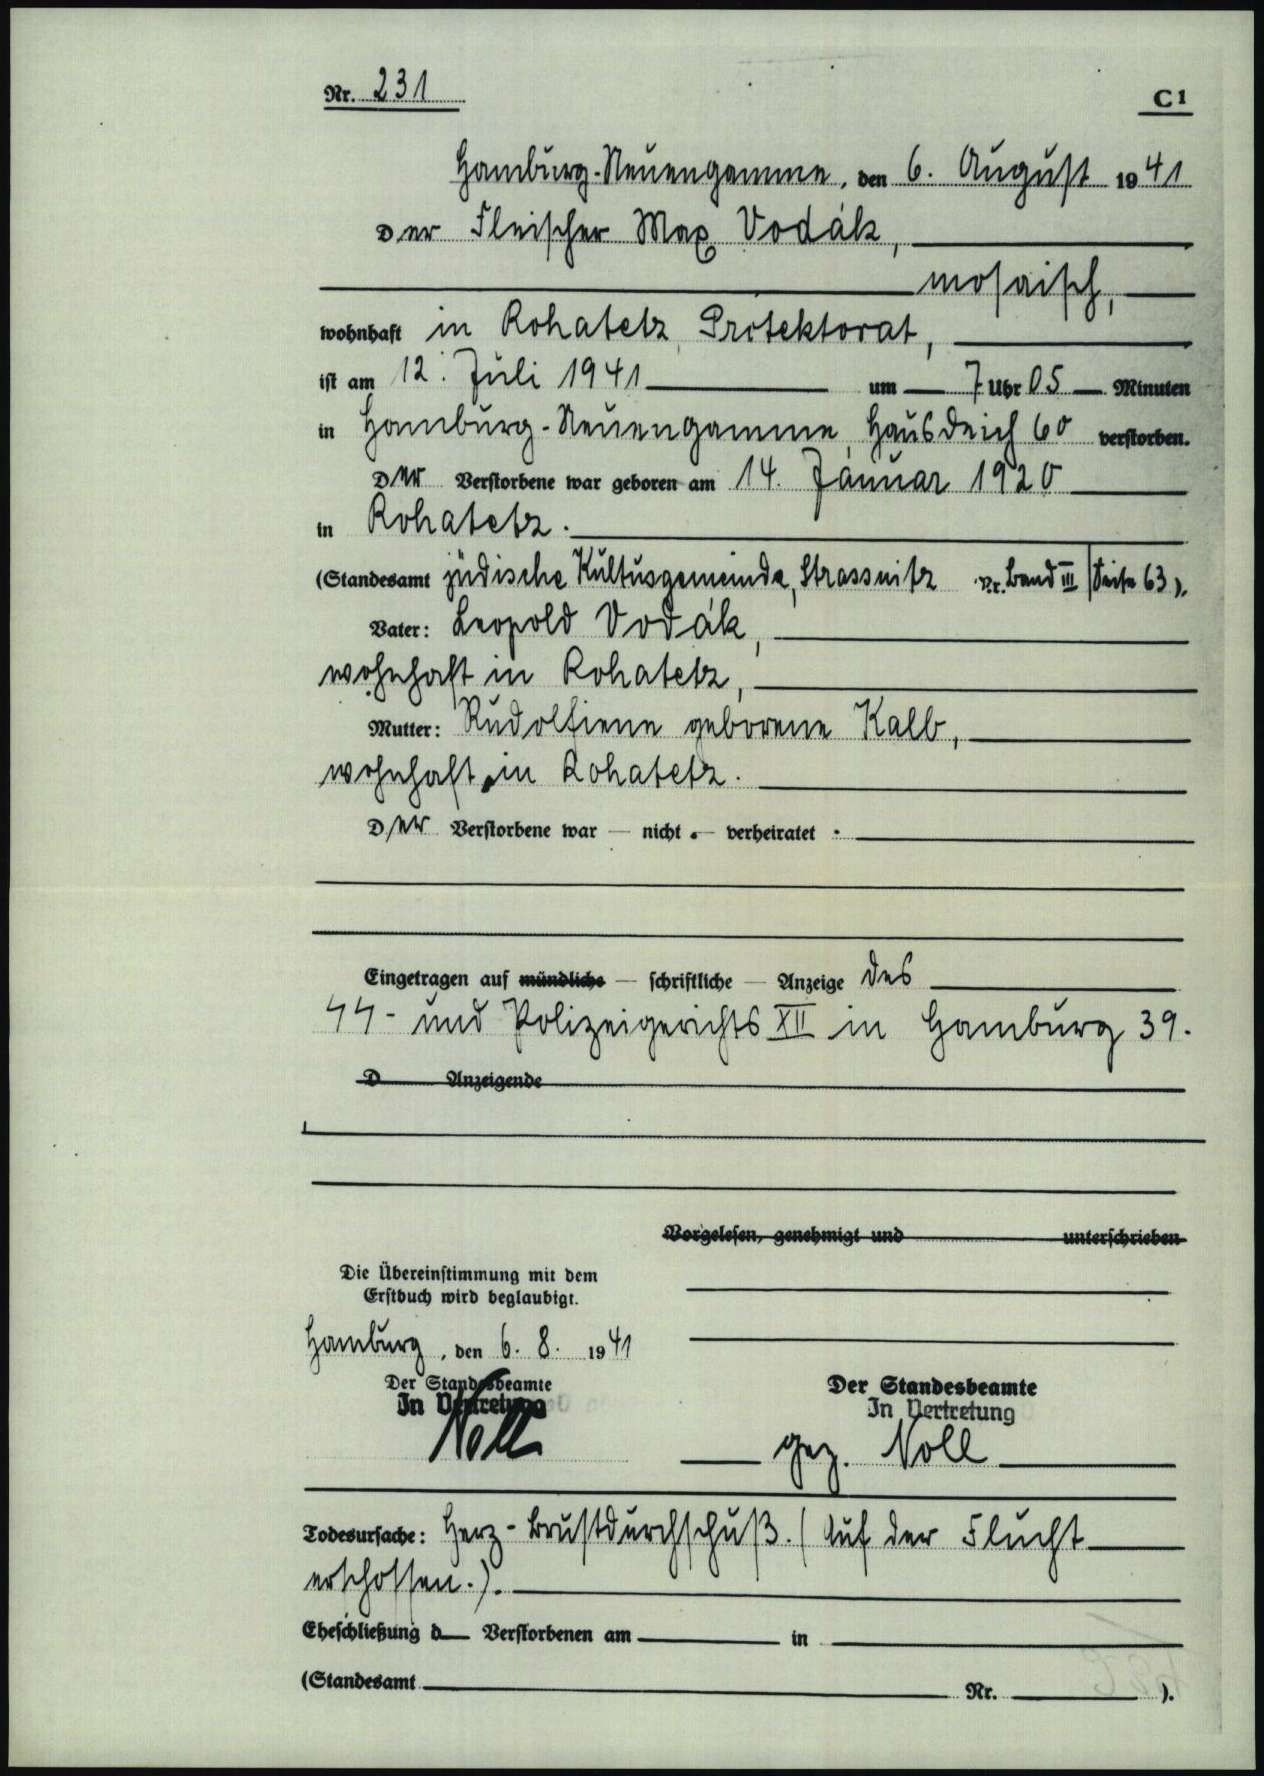 Nr. 231
C1
Hamburg-Neuengamme, den 6. August 1941
Der Fleischer Max Vodák,
mosaisch,
wohnhaft in Rohatetz, Protektorat,
ist am 12. Juli 1941 um 7 Uhr 05 Minuten
in Hamburg-Neuengamme, Hausdeich 60 verstorben.
Der Verstorbene war geboren am 14. Januar 1920
in Rohatetz.
(Standesamt jüdische Kultusgemeinde, Strassnitz Nr. Band III Seite 63).
Vater: Leopold Vodák,
wohnhaft in Rohatetz,
Mutter: Rudolfiene geborene Kalb,
wohnhaft in Rohatetz.
Der Verstorbene war — nicht — verheiratet.
Eingetragen auf mündliche — schriftliche — Anzeige des
SS- und Polizeigerichts XII in Hamburg 39.
D Anzeigende
Vorgelesen, genehmigt und unterschrieben
Die Übereinstimmung mit dem
Erstbuch wird beglaubigt.
Hamburg, den 6. 8. 1941
Der Standesbeamte
In Vertretung
Noll
Der Standesbeamte
In Vertretung
gez. Noll
Todesursache: Herz-Brustdurchschuß. (Auf der Flucht
erschossen.).
Eheschließung d Verstorbenen am in
(Standesamt Nr. ).